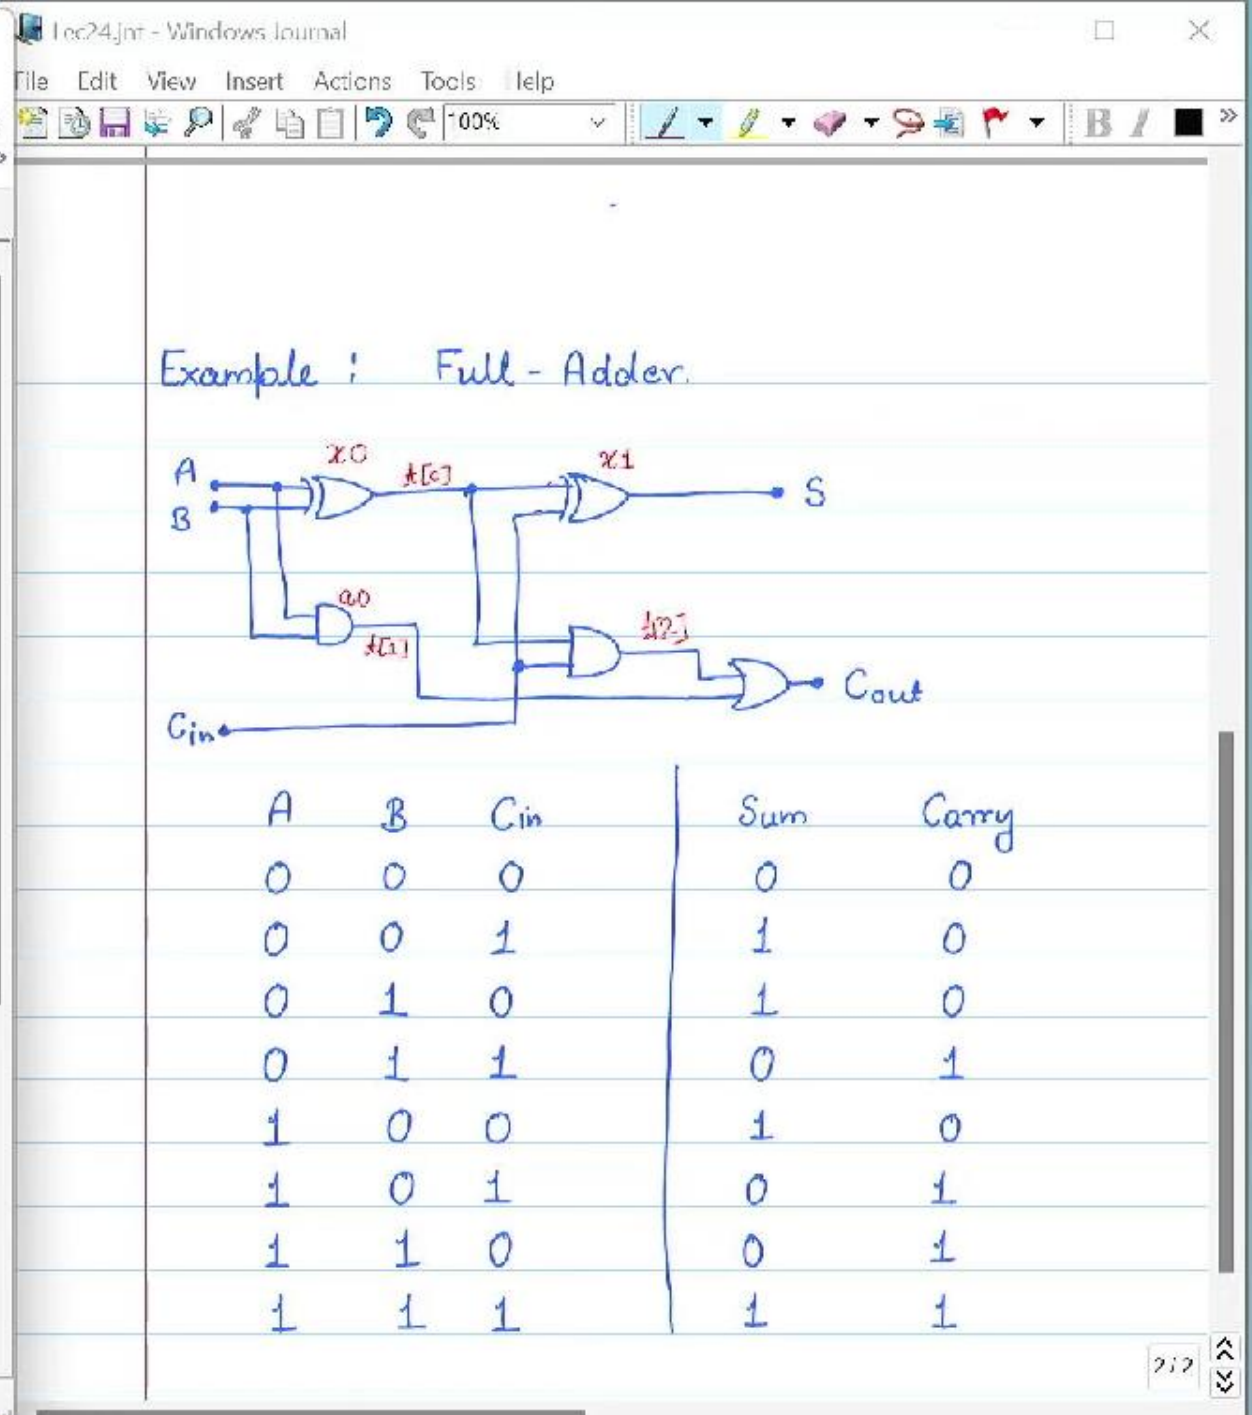 Lec24.jnt - Windows Journal
File Edit View Insert Actions Tools Help
100%
B I
Example : Full - Adder.
x0
x1
A
t[0]
S
B
a0
t[2]
t[1]
Cout
Cin
A B Cin Sum Carry
0 0 0 0 0
0 0 1 1 0
0 1 0 1 0
0 1 1 0 1
1 0 0 1 0
1 0 1 0 1
1 1 0 0 1
1 1 1 1 1
2/2